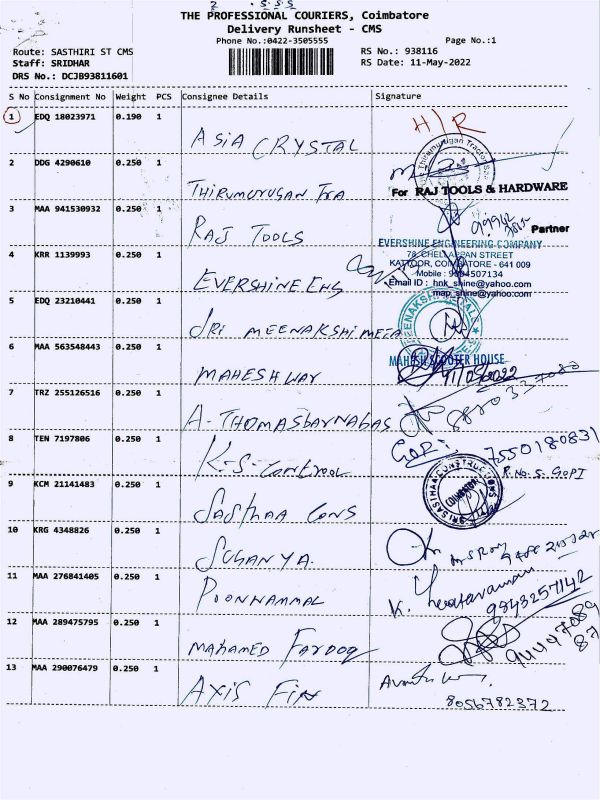 THE PROFESSIONAL COURIERS, Coimbatore
Delivery Runsheet - CMS
Phone No.:0422-3505555 Page No.:1
Route: SASTHIRI ST CMS RS No.: 938116
Staff: SRIDHAR RS Date: 11-May-2022
DRS No.: DCJB93811601
S No Consignment No Weight PCS Consignee Details Signature
1 EDQ 18023971 0.190 1 ASIA CRYSTAL H/R
2 DDG 4290610 0.250 1 THIRUMURUGAN Tra
For RAJ TOOLS & HARDWARE
3 MAA 941530932 0.250 1 RAJ TOOLS
Partner
EVERSHINE ENGINEERING COMPANY
4 KRR 1139993 0.250 1 EVERSHINE ENG
78, CHELLAPPAN STREET
KATTOOR, COIMBATORE - 641 009
Email ID : hnk_shine@yahoo.com
map_shine@yahoo.com
5 EDQ 23210441 0.250 1 SRI MEENAKSHI META
6 MAA 563548443 0.250 1 MAHESHWAR
MAHESH SCOOTER HOUSE
11/05/2022
7 TRZ 255126516 0.250 1 A-THOMASBARNABAS
8 TEN 7197806 0.250 1 K-S-CONTROOL
GOPI 7550180831
R.No: S. GOPI
9 KCM 21141483 0.250 1 SASTHAA CONS
SRI SASTHAA CONSTRUCTIONS
COIMBATORE
10 KRG 4348826 0.250 1 SUGANYA.
11 MAA 276841405 0.250 1 POONNAMMAL
K. 9843257142
12 MAA 289475795 0.250 1 MAHAMED FAROOQ
13 MAA 290076479 0.250 1 AXIS FIN
8056782372